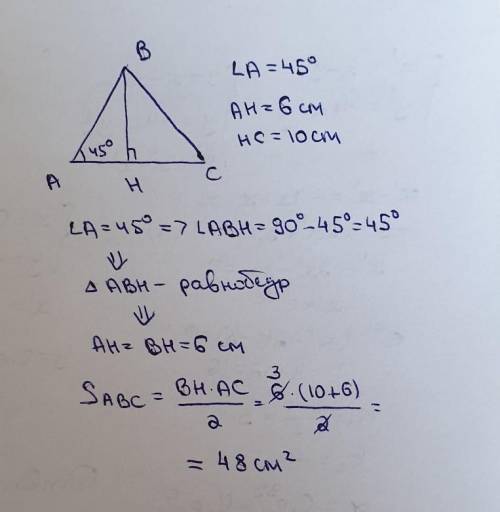 B
∠A = 45°
AH = 6 см
HC = 10 см
45°
A
H
C
∠A = 45° => ∠ABH = 90° - 45° = 45°
⇓
△ ABH - равнобедр
⇓
AH = BH = 6 см
S ABC = BH · AC / 2 = 3 6 · (10+6) / 2 =
= 48 см²